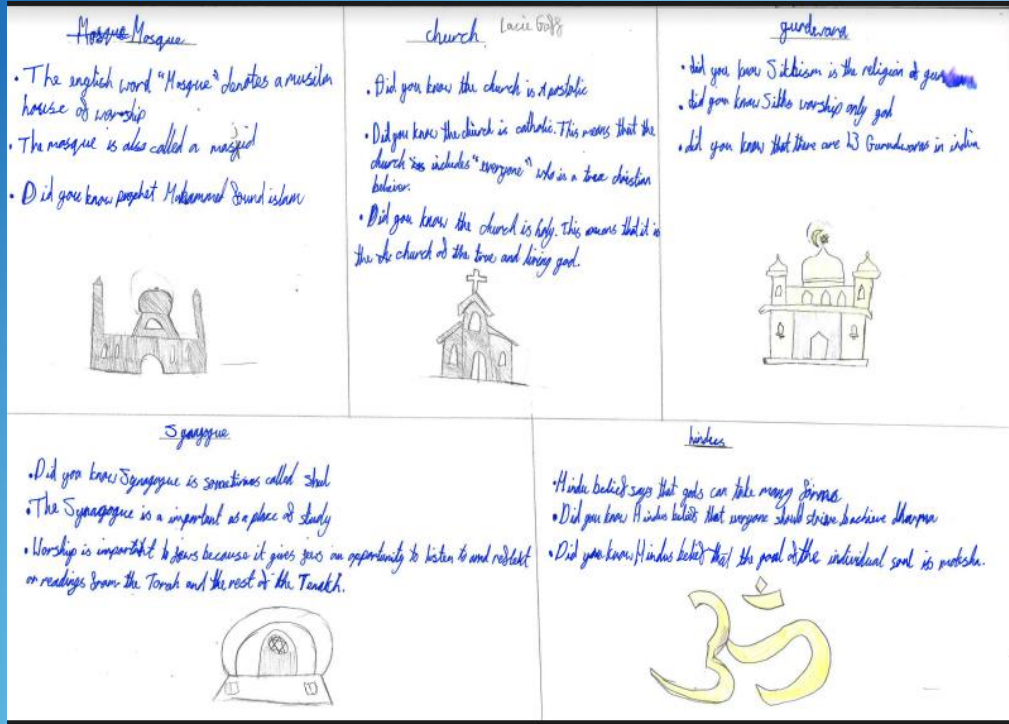 Mosque Mosque
• The english word "Mosque" denotes a musilm
house of worship
• The mosque is also called a masjid
• Did you know prophet Mohammed found islam
church
Lacie Goff
• Did you know the church is Apostolic
• Did you know the church is catholic. This means that the
church includes "everyone" who is a true christian
believer.
• Did you know the church is holy. This means that it is
the church of the true and living god.
gurdwara
• did you know Sikhism is the religion of
• did you know Sikhs worship only god
• did you know that there are 23 Gurudwaras in india
Synagogue
• Did you know Synagogue is sometimes called shul
• The Synagogue is a important as a place of study
• Worship is important to Jews because it gives jews an opportunity to listen to and reflekt
on readings from the Torah and the rest of the Tenakh.
hindus
• Hindu belief says that gods can take many forms
• Did you know Hindus belief that everyone should strive to achieve dharma
• Did you know Hindus belief that the goal of the individual soul is moksha.